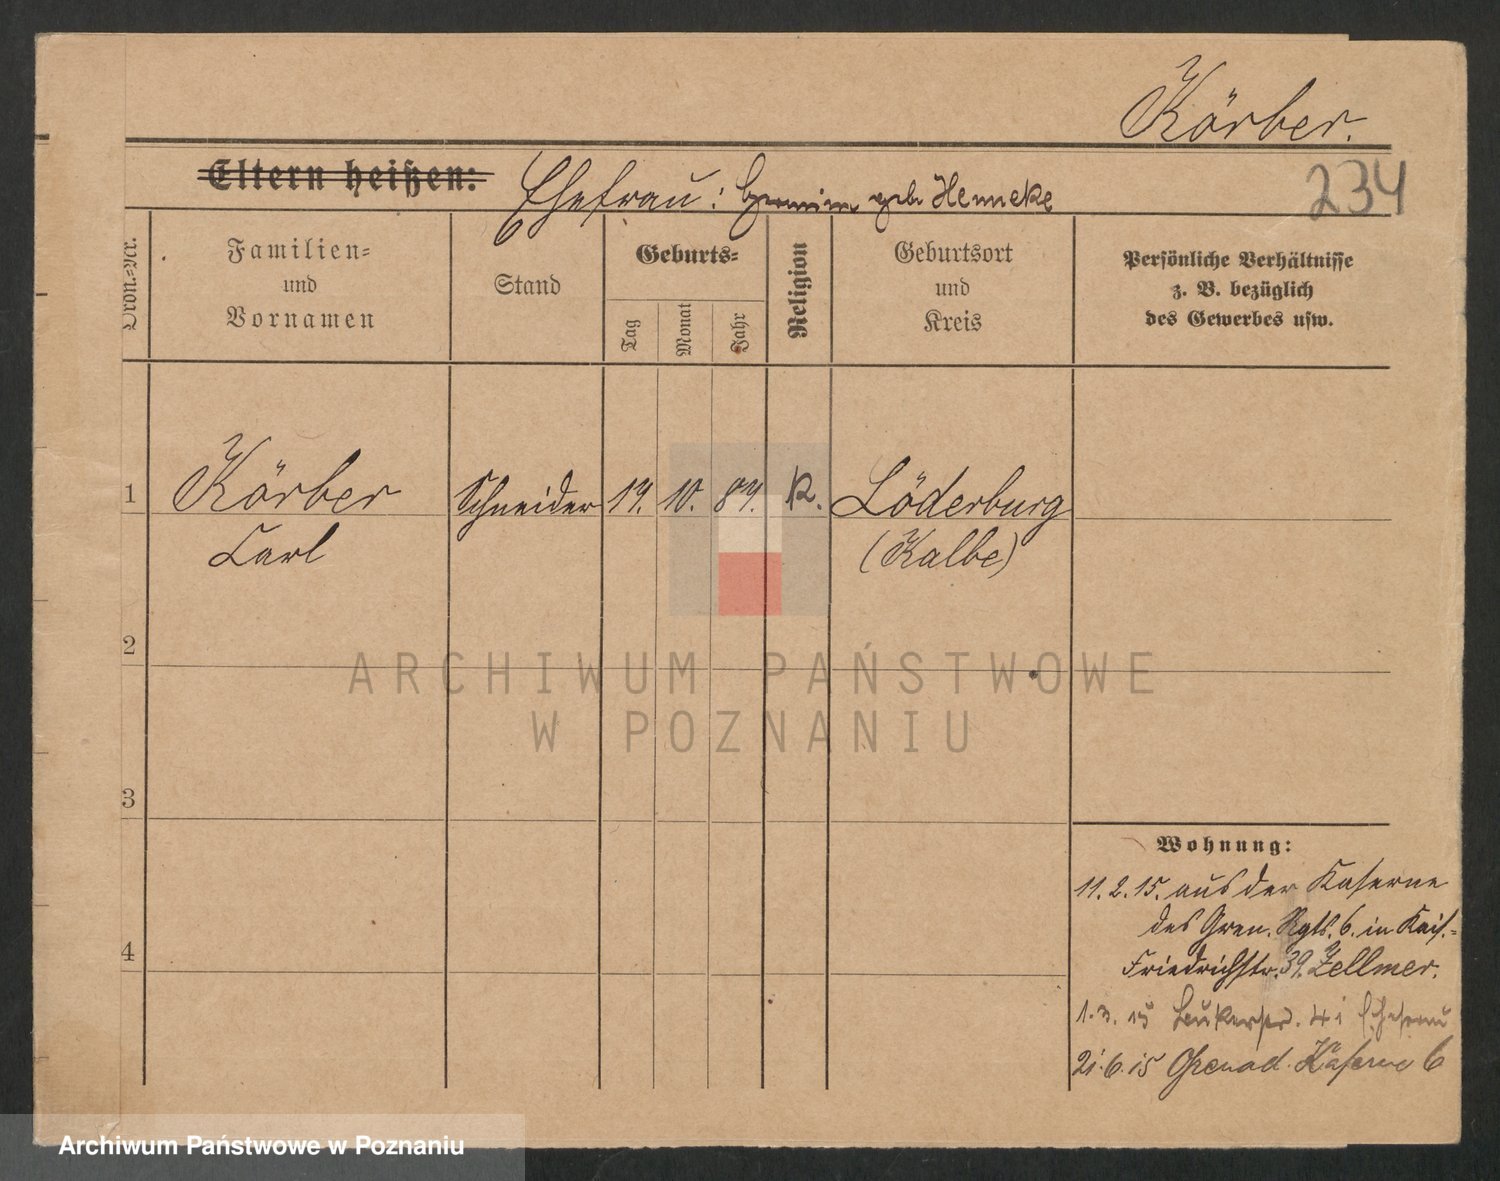 Körber.
Eltern heißen: Ehefrau: geb Henneke
234
Ordn.=Nr.
Familien=
und
Vornamen
Stand
Geburts=
Tag
Monat
Jahr
Religion
Geburtsort
und
Kreis
Persönliche Verhältnisse
z. B. bezüglich
des Gewerbes usw.
1 Körber Schneider 19. 10. 89. K. Löderburg
Carl (Kalbe)
2
3
4
Wohnung:
11. 2. 15. aus der Kaserne
des Gren. Rgts. 6. in Kais.=
Friedrichstr. 39. Zellmer.
1. 3. 15 41 Ehefrau
21.6.15 Grenad. Kaserne 6
ARCHIWUM PAŃSTWOWE
W POZNANIU
Archiwum Państwowe w Poznaniu